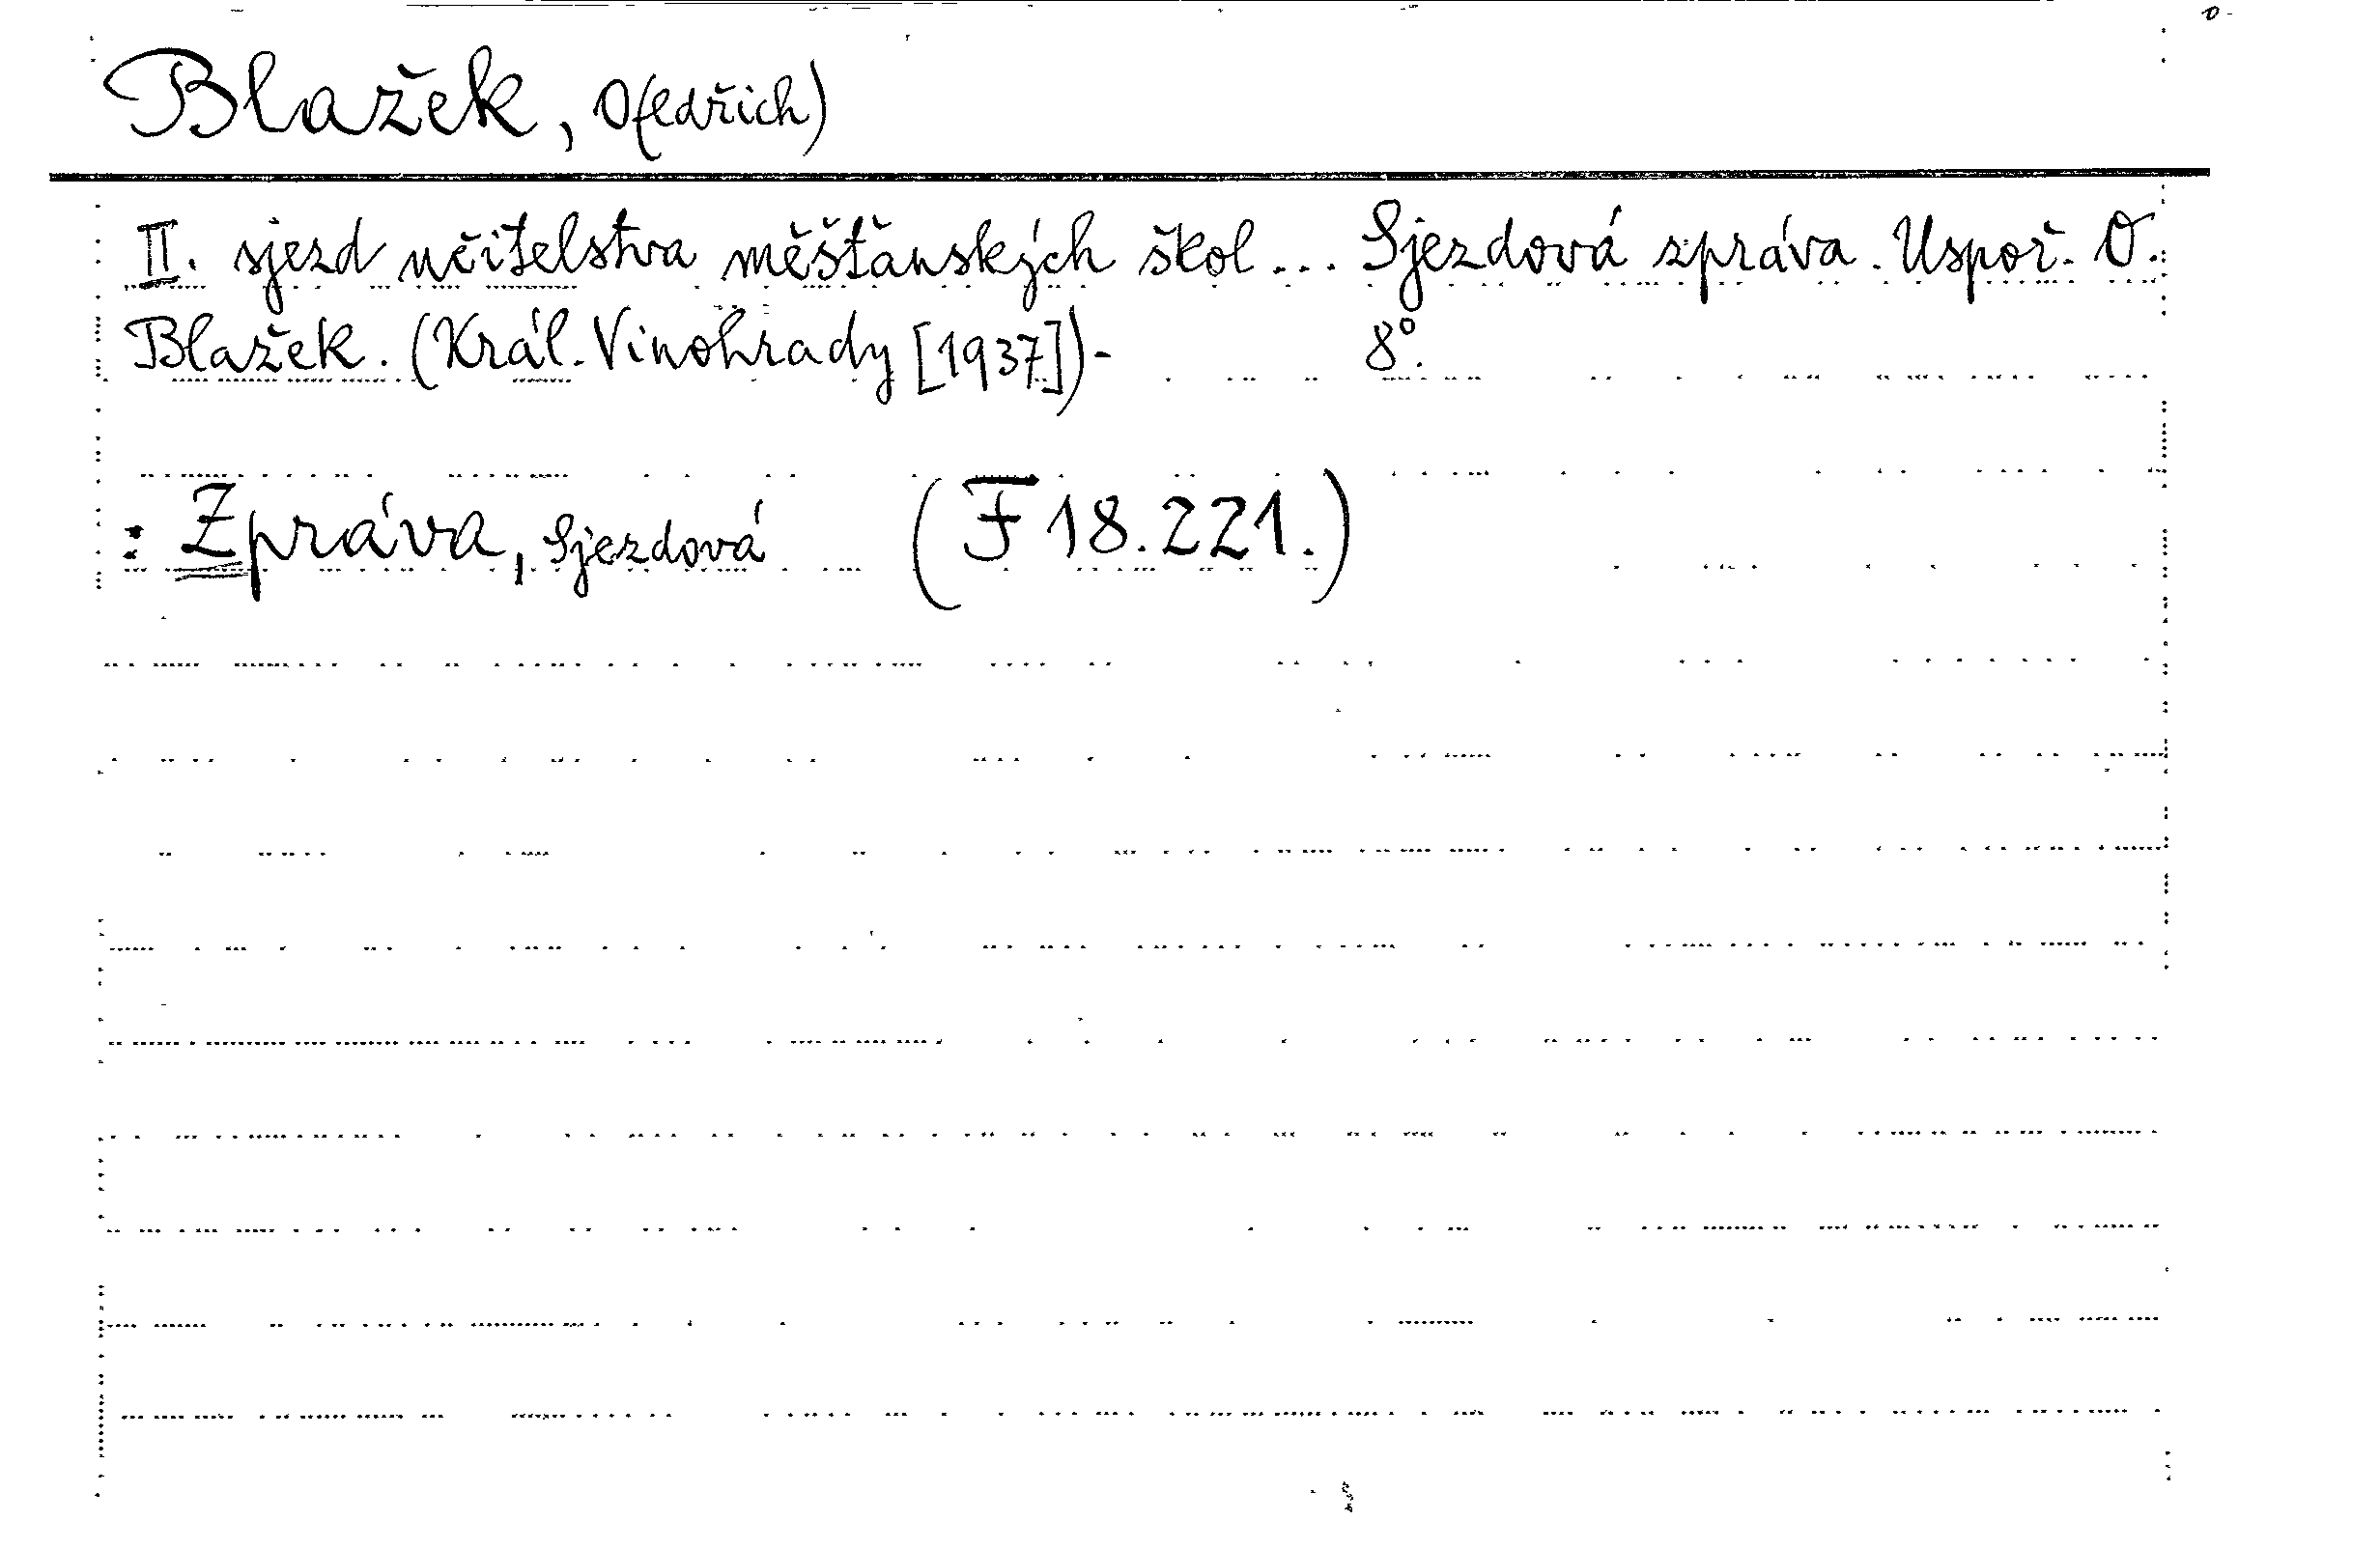 Blažek, O(ldřich)
II. sjezd učitelstva měšťanských škol... Sjezdová zpráva. Uspoř. O.
Blažek. (Král. Vinohrady [1937])- 8°.
: Zpráva, Sjezdová (F 18.221.)